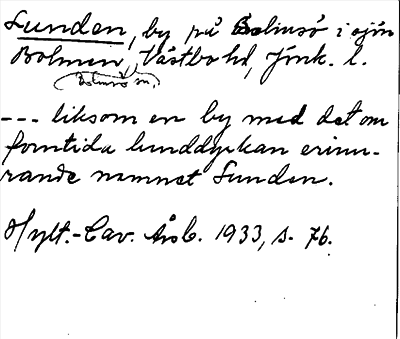 Lunden, by på Bolmsö i sjön
Bolmen, Västbo hd, Jönk. l.
Bolmsö sn,
--- liksom en by med det om
forntida lunddyrkan erinn-
rande namnet Lunden.
Hylt.-Cav. Årsb. 1933, s. 76.